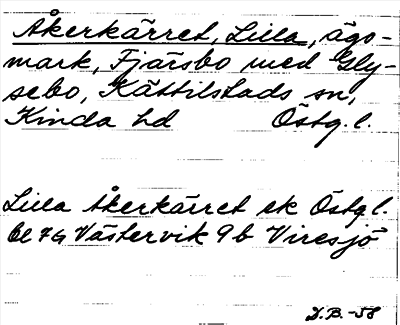 Åkerkärret, Lilla, ägo-
mark, Fjärsbo med Gly-
sebo, Kättilstads sn,
Kinda hd Östg.l.
Lilla Åkerkärret ek Östg l.
Bl 7G Västervik 9b Viresjö
D.B.-58